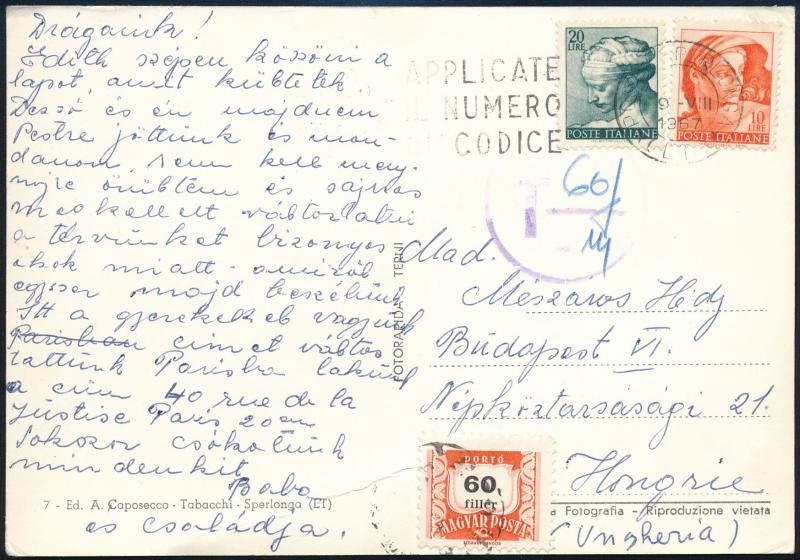 Drágáink!
Edith szépen köszöni a
lapot, amit küldtek.
Dezső és én majdnem
Pestre jöttünk és mon-
danom sem kell meny-
nyire örültem és sajnos
meg kellett változtatni
a tervünket bizonyos
okok miatt - amiről
egyszer majd beszélünk
Itt a gyerekekkel vagyunk
Parisban címet változ
tattunk Parisba lakunk
a cím 40 rue de la
Justise Paris 20em
Sokszor csókolunk
mindenkit
Babo
és családja.
7 - Ed. A. Caposecco - Tabacchi - Sperlonga (LT)
FOTORAPIDA TERNI
APPLICATE
IL NUMERO
CODICE
20
LIRE
POSTE ITALIANE
10
LIRE
POSTE ITALIANE
9 -VIII
1967
T
60/
Mad.
Mészaros Hédy
Budapest VI.
Népköztarsasági 21.
Hongrie
(Ungheria)
PORTÓ
60
fillér
MAGYAR POSTA
a Fotografia - Riproduzione vietata